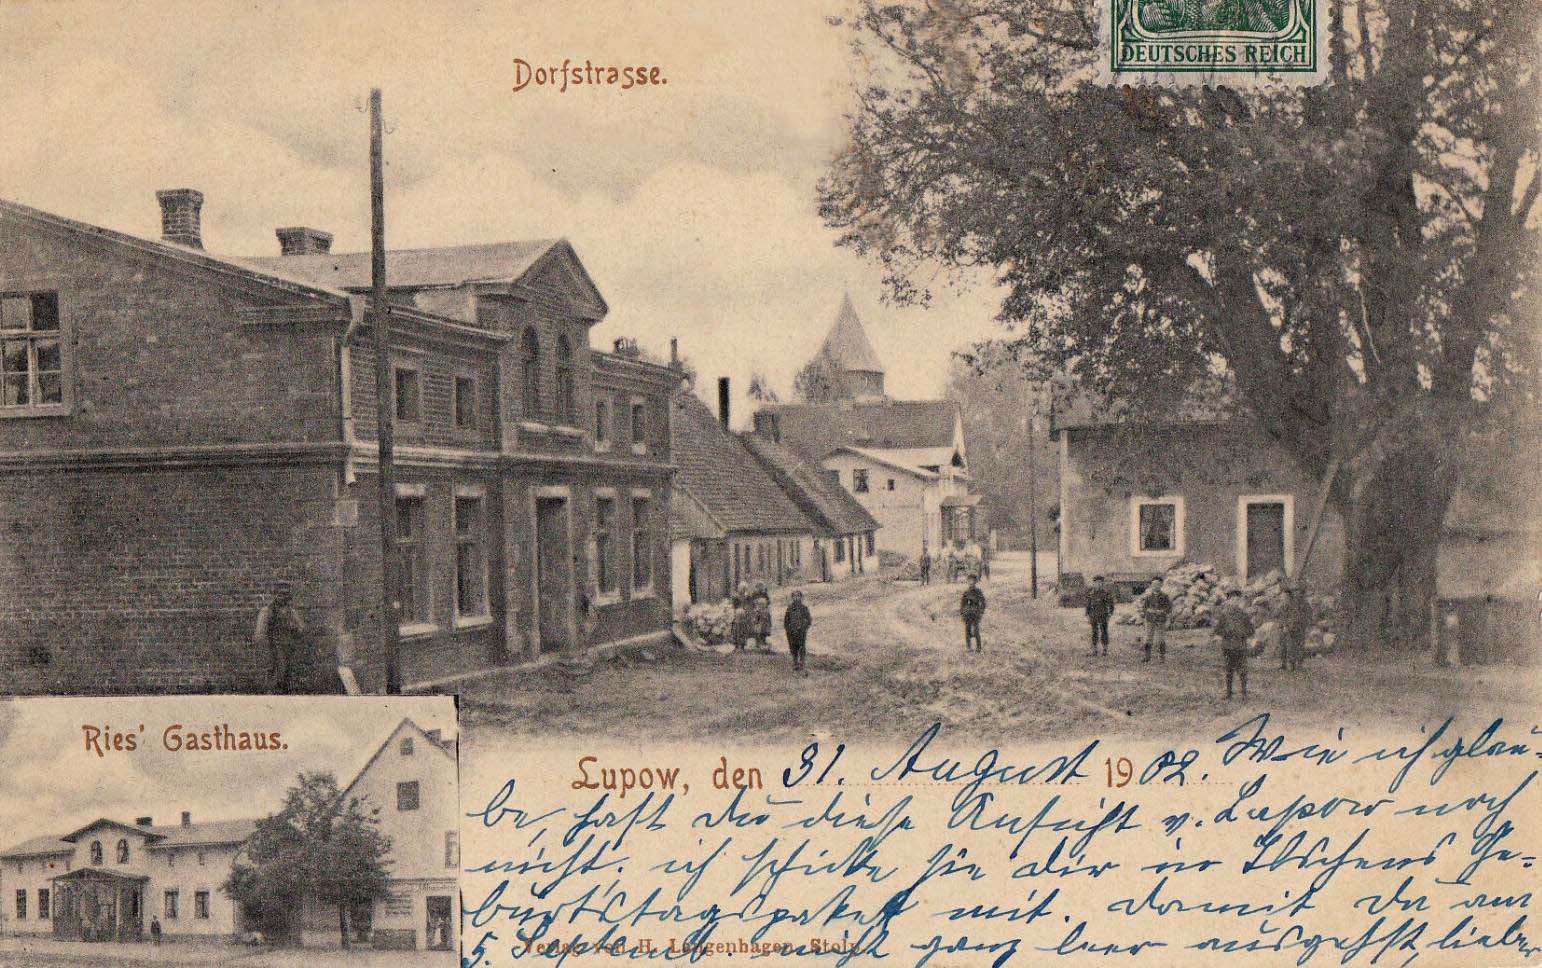 DEUTSCHES REICH
Dorfstrasse.
Ries' Gasthaus.
Lupow, den 31. August 1902. Wie ich glau-
be, hast du diese Ansicht v. Lupow noch
nicht; ich schicke sie dir in Ilschens Ge-
burtstagspaket mit. Damit du am
5. Septemb. nicht ganz leer ausgehst, lieber
Verlag von H. Langenhagen, Stolp.